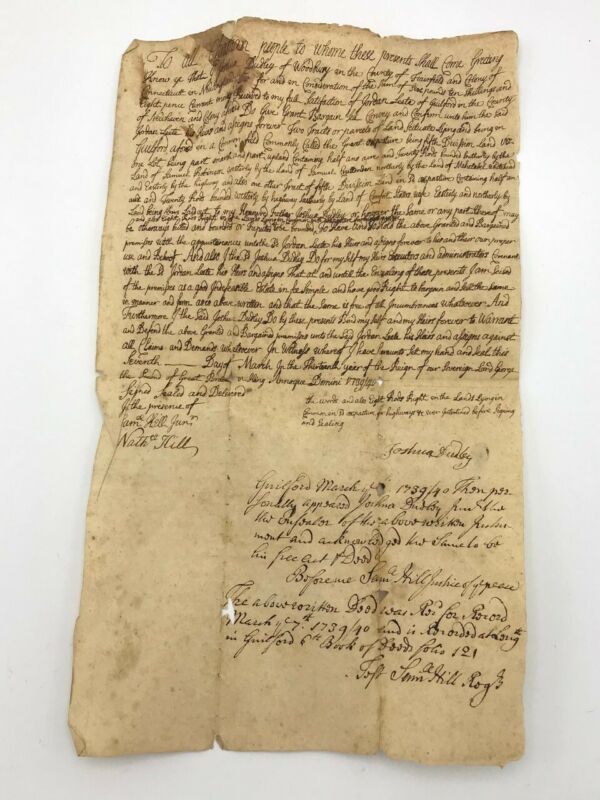 To all people to whome these presents Shall Come Greeting
Know ye that Dudley of Woodbury in the County of Fairfield and Colony of
Connecticut in for and in Consideration of the Sum of five pounds ten Shillings and
Eight pence Current to my full Satisfaction of Jordan Leete of Guilford in the County
of Newhaven and Colony Do Give Grant Bargain Sell Convey and Confirm unto him the Said
Jordan Leete his heirs and assigns forever Two Tracts or parcels of Land Scituate Lying and being in
Guilford in a Commonly Called the being fifth Division Land
one Lot being part and part upland Containing half ane acre and Twenty Rods bounded Southerly by the
Land of Samuel Robinson Westerly by the Land of Samuel Northerly by the Land of
and Easterly by the highway and also one other Tract of fifth Division Land in Containing half ane
acre and Twenty Rods bounded westerly by highway Southerly by Land of Easterly and northerly by
Land to my Honoured Father Joshua Dudley or however the Same or any part thereof may
be otherways buted and bounded or Reputed to be bounded To Have and to Hold the above Granted and Bargained
premises with the appurtenances unto the Sd Jordan Leete his Heirs and assigns forever to his and their own proper
use and Behoof And also I the Sd Joshua Dudley Do for my Self my Heirs Executors and administrators Covenant
with the Sd Jordan Leete his Heirs and assigns that at and untill the Ensealing of these presents I am Seized
of the premises as a good Indefeasible Estate in fee Simple and have good Right to bargain and Sell the same
in manner and form as is above written and that the Same is free of all Incumbrances whatsoever And
Furthermore I the Said Joshua Dudley Do by these presents Bind my Self and my Heirs forever to Warrant
and Defend the above Granted and Bargained premises unto the Said Jordan Leete his Heirs and assigns against
all Claims and Demands whatsoever In Witness whereof I have hereunto Set my hand and Seal this
Seventh Day of March In the Thirteenth year of the Reign of our Sovereign Lord George
the Second of Great Britain King Annoque Domini 1739/40
Signed Sealed and Delivered
In the presence of
Samll Hill Junr
Nathll Hill
the words and also Eight Rods Right in the Lands Lying in
Common in Sd for highways &c were Interlined before Signing
and Sealing
Joshua Dudley
Guilford March ye 7th 1739/40 Then per
sonally appeared Joshua Dudley
the of the above written Instru
ment and acknowledged the Same to be
his free act & Deed
Before me Samll Hill Justice of ye peace
The above written Deed was Recd for Record
March ye 7th 1739/40 and is Recorded at Length
in Guilford 6th Book of Deeds folio 121
Test Samll Hill Regr